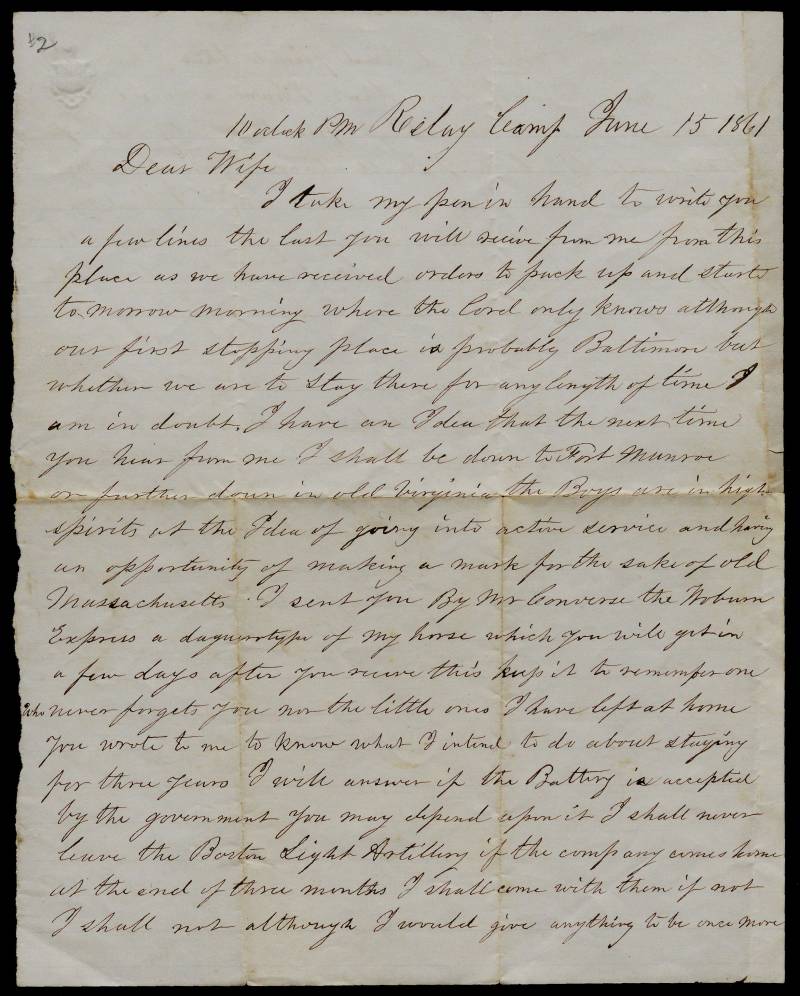 2
10 oclock PM Relay Camp June 15 1861
Dear Wife
I take my pen in hand to write you
a few lines the last you will recive from me from this
place as we have received orders to pack up and start
to morrow morning where the Lord only knows although
our first stopping place is probably Baltimore but
whether we are to stay there for any length of time I
am in doubt, I have an Idea that the next time
you hear from me I shall be down to Fort Munroe
or further down in old Virginia the Boys are in high
spirits at the Idea of going into active service and having
an opportunity of making a mark for the sake of old
Massachusetts. I sent you By Mr Converse the Woburn
Express a daguerotype of my horse which you will get in
a few days after you recive this keep it to remember one
who never forgets you nor the little ones I have left at home
you wrote to me to know what I intend to do about staying
for three years I will answer if the Battery is accepted
by the government you may depend upon it I shall never
leave the Boston Light Artillery if the company comes home
at the end of three months I shall come with them if not
I shall not although I would give anything to be once more